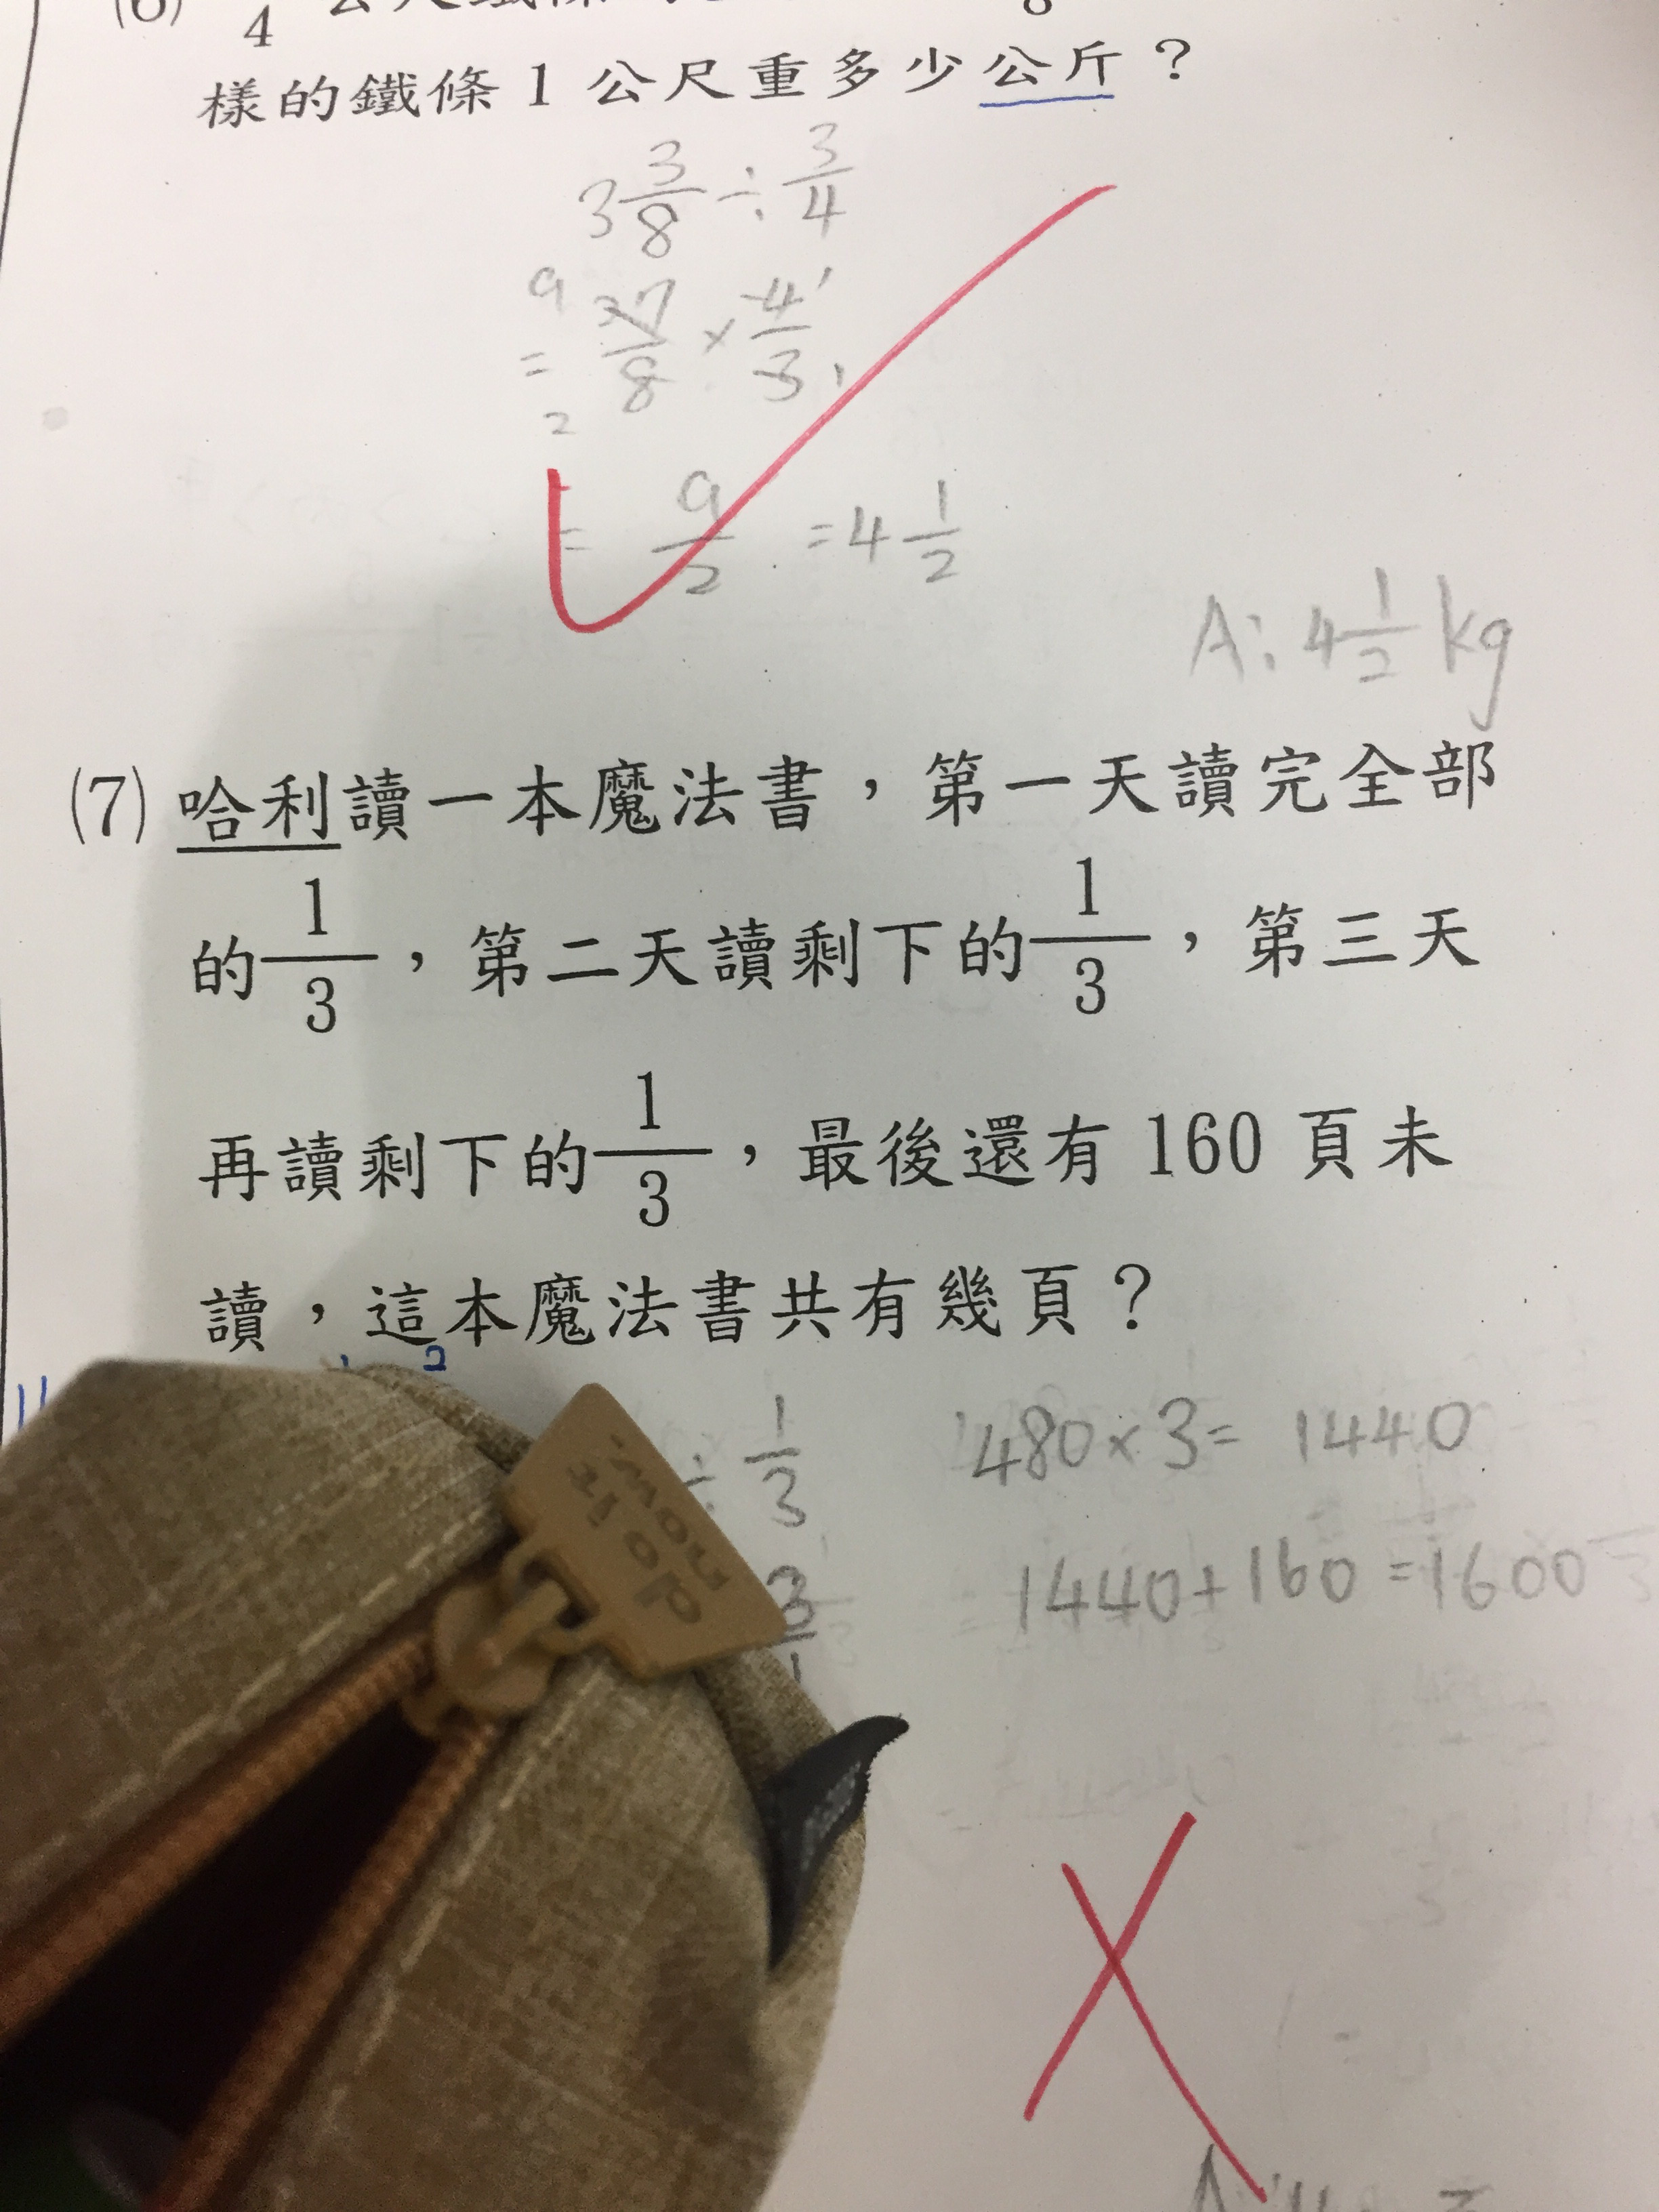 (6) 4
樣的鐵條1公尺重多少公斤？
3 3/8 ÷ 3/4
9 27/8 × 4/3 1 1
= 2
= 9/2 = 4 1/2
A: 4 1/2 kg
(7) 哈利讀一本魔法書，第一天讀完全部
的 1/3 ，第二天讀剩下的 1/3 ，第三天
再讀剩下的 1/3 ，最後還有 160 頁未
讀，這本魔法書共有幾頁？
2
÷ 1/3 480×3= 1440
3/1 1440+160=1600
imou
dolr